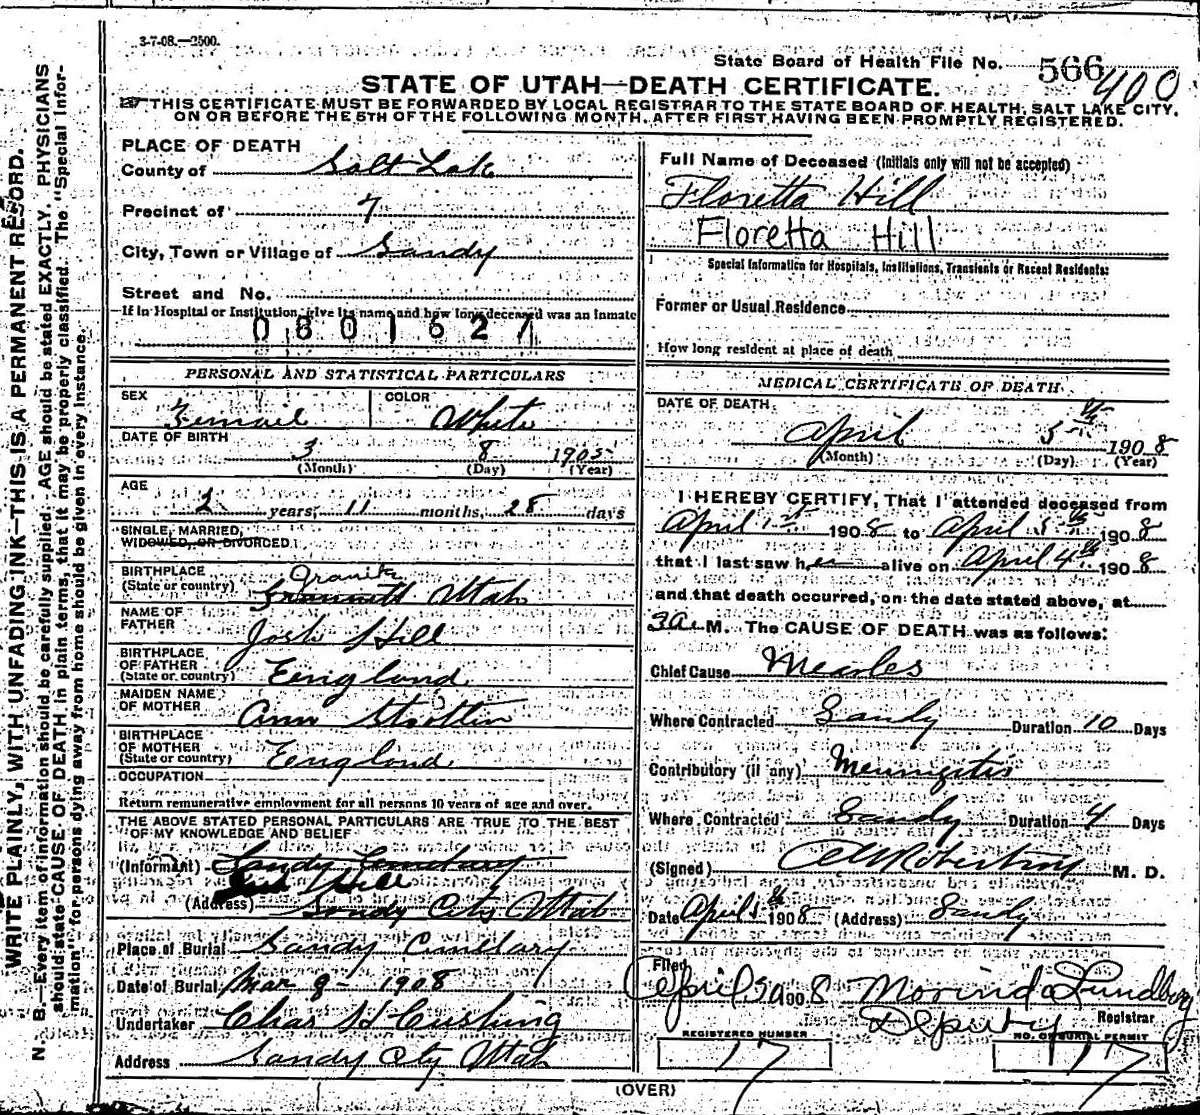 3-7-08.—2500.
State Board of Health File No. 566 400
STATE OF UTAH—DEATH CERTIFICATE.
THIS CERTIFICATE MUST BE FORWARDED BY LOCAL REGISTRAR TO THE STATE BOARD OF HEALTH, SALT LAKE CITY,
ON OR BEFORE THE 5TH OF THE FOLLOWING MONTH, AFTER FIRST HAVING BEEN PROMPTLY REGISTERED.
WRITE PLAINLY, WITH UNFADING INK—THIS IS A PERMANENT RECORD.
N. B.—Every item of information should be carefully supplied. AGE should be stated EXACTLY. PHYSICIANS
should state CAUSE OF DEATH in plain terms, that it may be properly classified. The "Special Infor-
mation" for persons dying away from home should be given in every instance.
PLACE OF DEATH
County of Salt Lake
Precinct of 7
City, Town or Village of Sandy
Street and No.
If in Hospital or Institution, give its name and how long deceased was an inmate
0801627
PERSONAL AND STATISTICAL PARTICULARS
SEX Femail COLOR White
DATE OF BIRTH 3 8 1905
(Month) (Day) (Year)
AGE
2 years, 11 months, 28 days
SINGLE, MARRIED,
WIDOWED, OR DIVORCED
BIRTHPLACE
(State or country) Granite Utah
NAME OF
FATHER Josh Hill
BIRTHPLACE
OF FATHER
(State or country) England
MAIDEN NAME
OF MOTHER Ann
BIRTHPLACE
OF MOTHER
(State or country) England
OCCUPATION
Return remunerative employment for all persons 10 years of age and over.
THE ABOVE STATED PERSONAL PARTICULARS ARE TRUE TO THE BEST
OF MY KNOWLEDGE AND BELIEF
(Informant) Sandy Cemetary
Hill
(Address) Sandy City Utah
Place of Burial Sandy Cemetary
Date of Burial Mar 8- 1908
Undertaker Chas H Cushing
Address Sandy City Utah
Full Name of Deceased (Initials only will not be accepted)
Floretta Hill
Floretta Hill
Special Information for Hospitals, Institutions, Transients or Recent Residents:
Former or Usual Residence
How long resident at place of death
MEDICAL CERTIFICATE OF DEATH
DATE OF DEATH
April 5th 1908
(Month) (Day) (Year)
I HEREBY CERTIFY, That I attended deceased from
April 1st 1908 to April 5th 1908
that I last saw her alive on April 4th 1908
and that death occurred, on the date stated above, at
3 a. M. The CAUSE OF DEATH was as follows:
Chief Cause Measles
Where Contracted Sandy Duration 10 Days
Contributory (if any) Meningitis
Where Contracted Sandy Duration 4 Days
(Signed) Robertson M. D.
Date April 5th 1908 (Address) Sandy
Filed April 5 1908 Morinda Lundberg
Deputy Registrar
REGISTERED NUMBER NO. OF BURIAL PERMIT
17 117
(OVER)